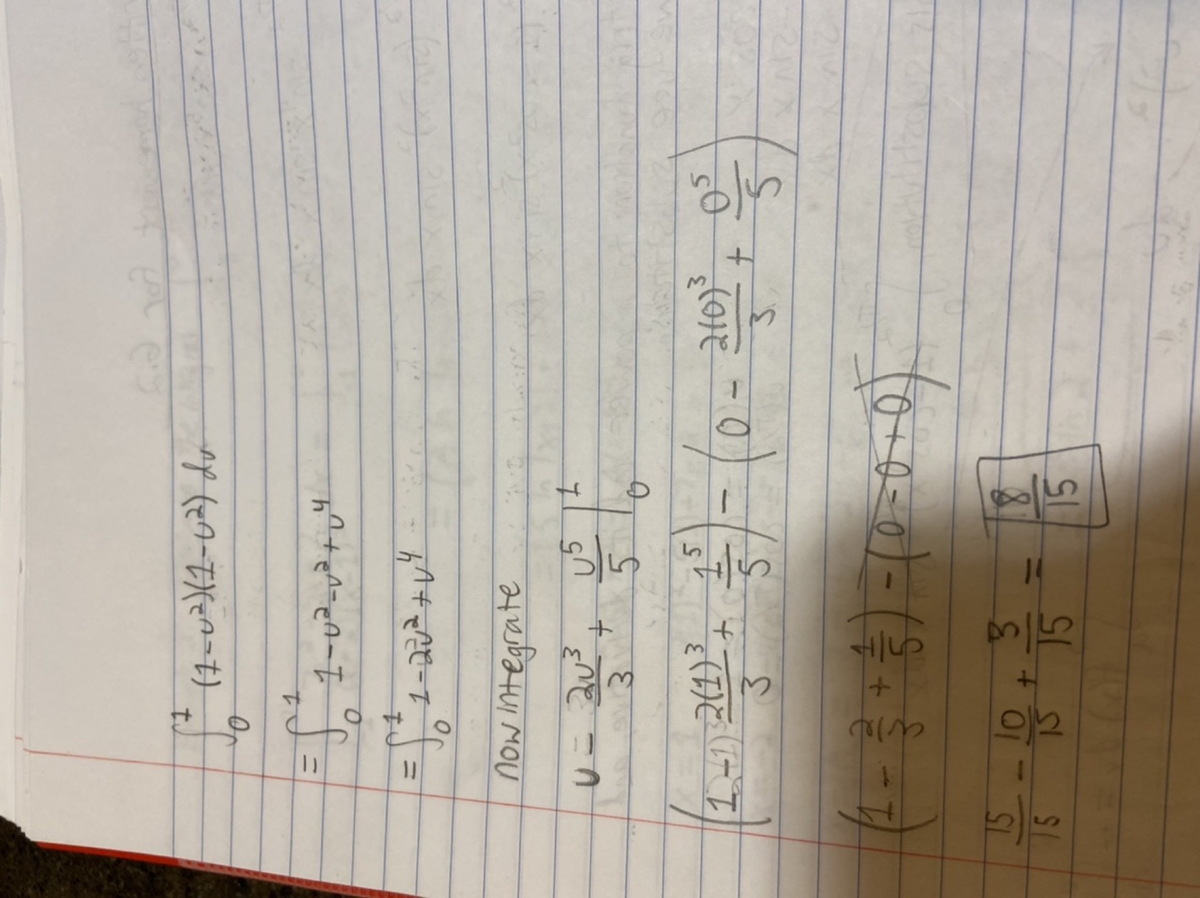 ∫₀¹ (1-u²)(1-u²) du
= ∫₀¹ 1-u²-u²+u⁴
= ∫₀¹ 1-2u²+u⁴
now integrate
u - 2u³/3 + u⁵/5 |₀¹
(1 - 2(1)³/3 + 1⁵/5) - (0 - 2(0)³/3 + 0⁵/5)
(1 - 2/3 + 1/5) - (0-0+0)
15/15 - 10/15 + 3/15 = 8/15